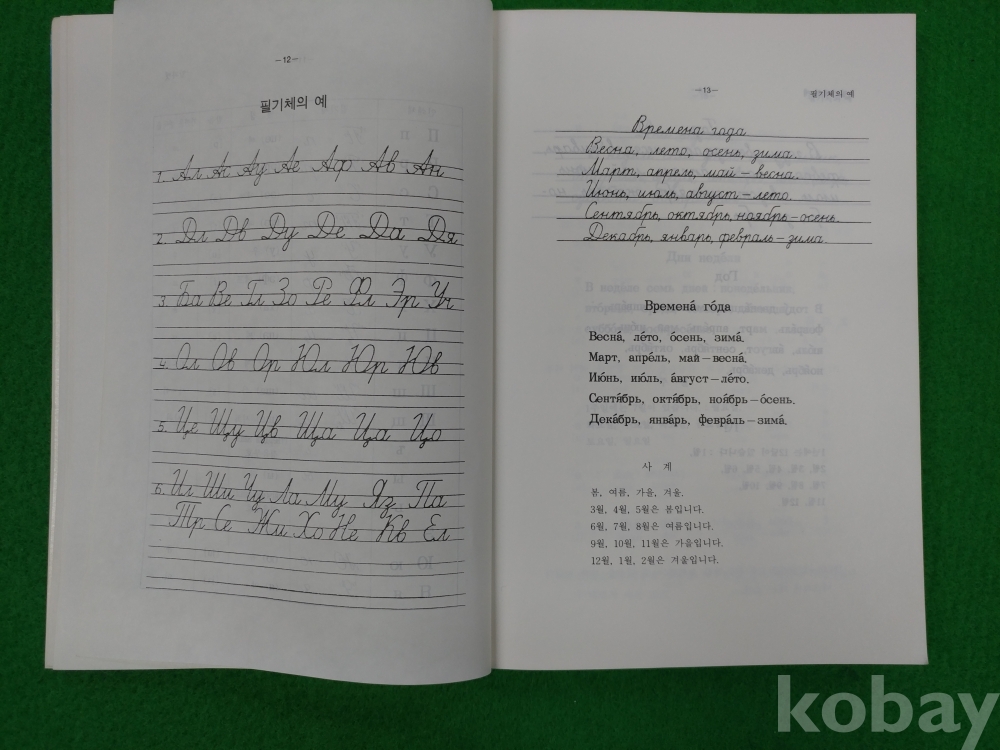 －12－
필기체의 예
1. Ал Аг Ау Ае Аф Ав Ан
2. Дл Дв Ду Де Да Дя
3. Ба Ве Гл Зо Ре Фл Эр Уч
4. Ол Ов Ор Юл Юр Юв
5. Це Щу Цв Ща Ца Цо
6. Ил Ши Чц Ла Му Яз Па
Тр Се Жи Хо Не Кв Ел
－13－
필기체의 예
Времена года
Весна, лето, осень, зима.
Март, апрель, май – весна.
Июнь, июль, август – лето.
Сентябрь, октябрь, ноябрь – осень.
Декабрь, январь, февраль – зима.
Временá гóда
Веснá, лéто, óсень, зимá.
Март, апрéль, май – веснá.
Ию́нь, ию́ль, áвгуст – лéто.
Сентя́брь, октя́брь, ноя́брь – óсень.
Декáбрь, янвáрь, феврáль – зимá.
사 계
봄, 여름, 가을, 겨울.
3월, 4월, 5월은 봄입니다.
6월, 7월, 8월은 여름입니다.
9월, 10월, 11월은 가을입니다.
12월, 1월, 2월은 겨울입니다.
kobay